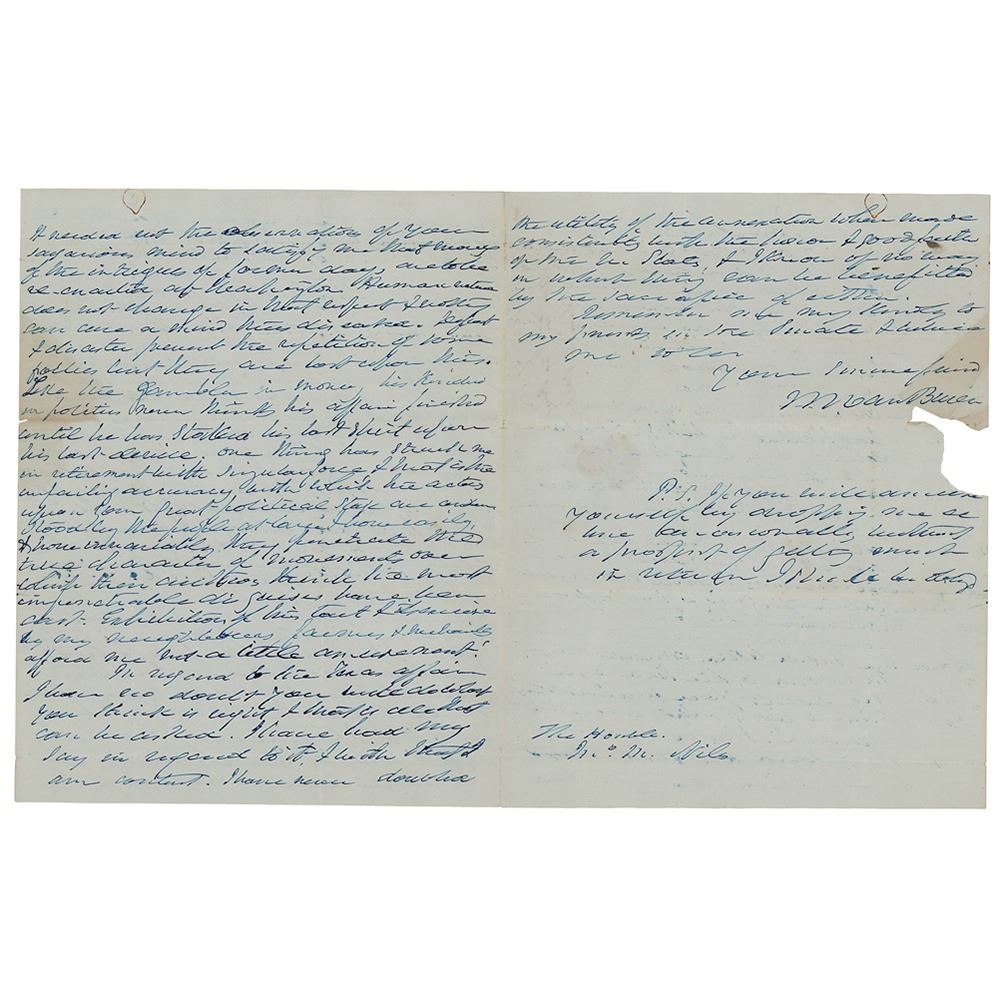 It needed not the observations of your
sagacious mind to satisfy me that many
of the intrigues of former days are to be
re-enacted at Washington. Human nature
does not change in that respect & nothing
can cure a mind thus diseased. Defeat
& disaster prevent the repetition of some
follies but they are lost upon this.
Like the Gambler in money, his Kindred
in politics never thinks his affairs finished
until he has Staked his last Shirt upon
his last device. One thing has struck me
in retirement with singular force & that is the
unfailing accuracy with which the actors
upon our great political Stage are under-
stood by the people at large, how easily,
& how invariably they penetrate the
true character of movements over
which their authors think the most
impenetrable disguises have been
cast. Exhibitions of this tact & shrewdness
by my neighbours, farmers & mechanics
afford me not a little amusement.
In regard to the Texas affair
I have no doubt you will do what
you think is right & that is all that
can be asked. I have had my
say in regard to it & with that I
am content. I have never doubted
the utility of the annexation when made
consistently with the honor & good faith
of the Un. States, & I know of no way
in which they can be benefitted
by the sacrifice of either.
Remember me very kindly to
my friends in the Senate & believe
me to be
Your sincere friend
M. Van Buren
P.S. If you will amuse
yourself by dropping me a
line occasionally without
a prospect of getting much
in return I shall be
The Honble.
Jno. M. Niles